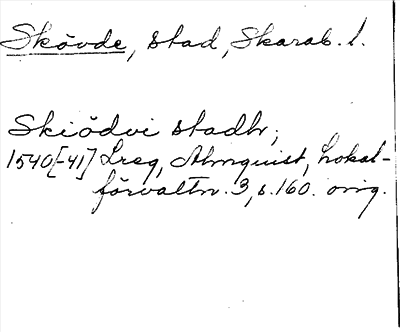 Skövde, stad, Skarab. l.
Skiödvi stadhr,
1540[-41] Lreg, Almquist, Lokal-
förvaltn. 3, s. 160. orig.